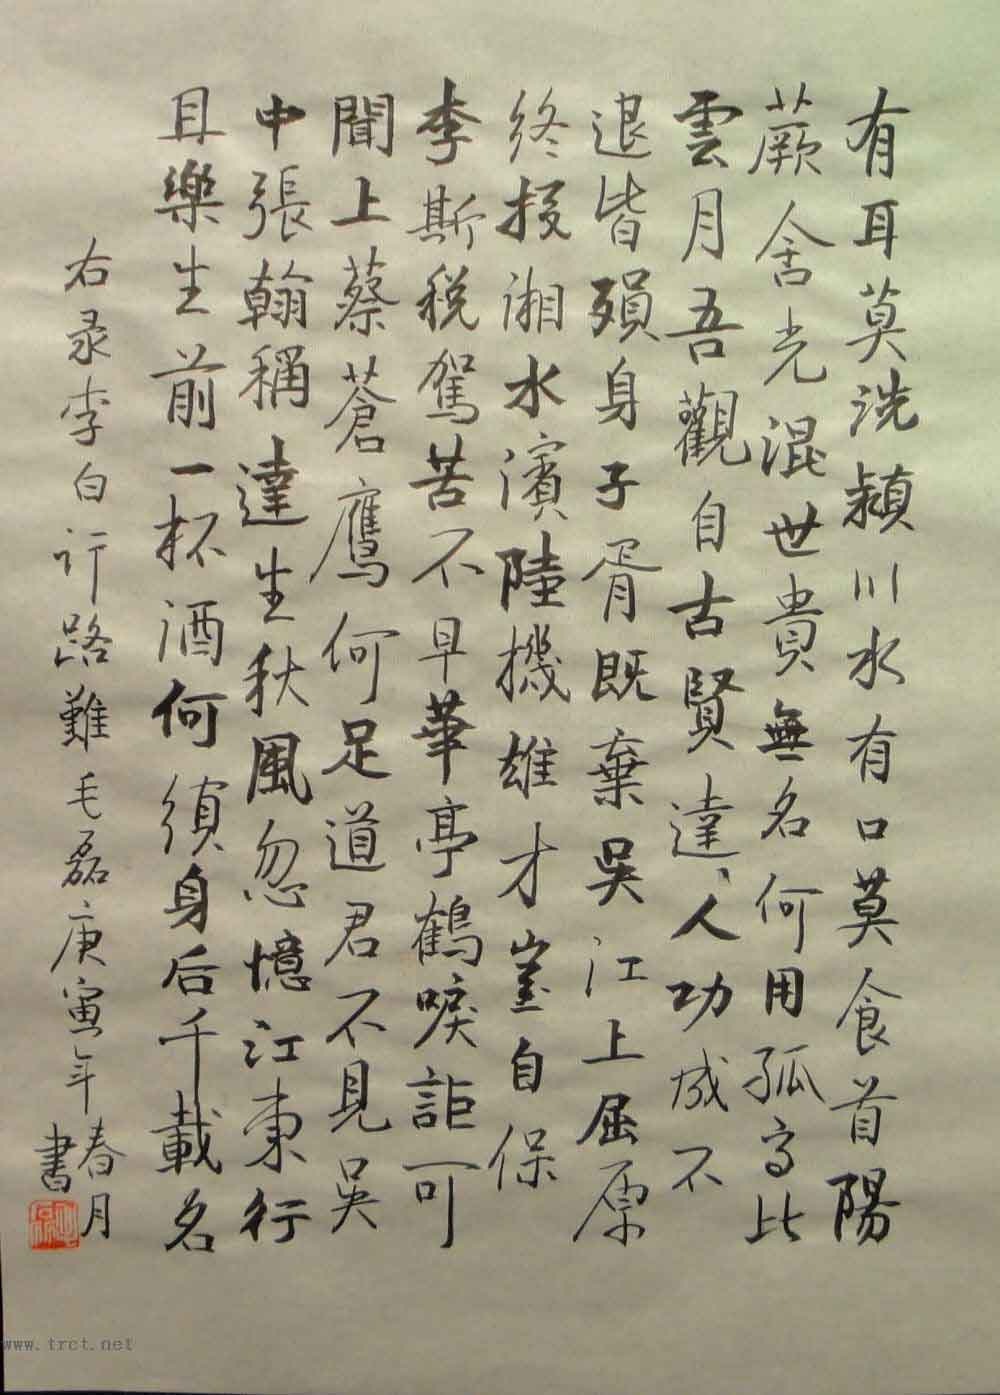 有耳莫洗潁川水有口莫食首陽
蕨含光混世貴無名何用孤高比
雲月吾觀自古賢達人功成不
退皆殞身子胥既棄吳江上屈原
終投湘水濱陸機雄才豈自保
李斯税駕苦不早華亭鶴唳詎可
聞上蔡蒼鷹何足道君不見吳
中張翰稱達生秋風忽憶江東行
且樂生前一杯酒何須身后千載名
右录李白行路難毛磊庚寅年春月
書
www.trct.net